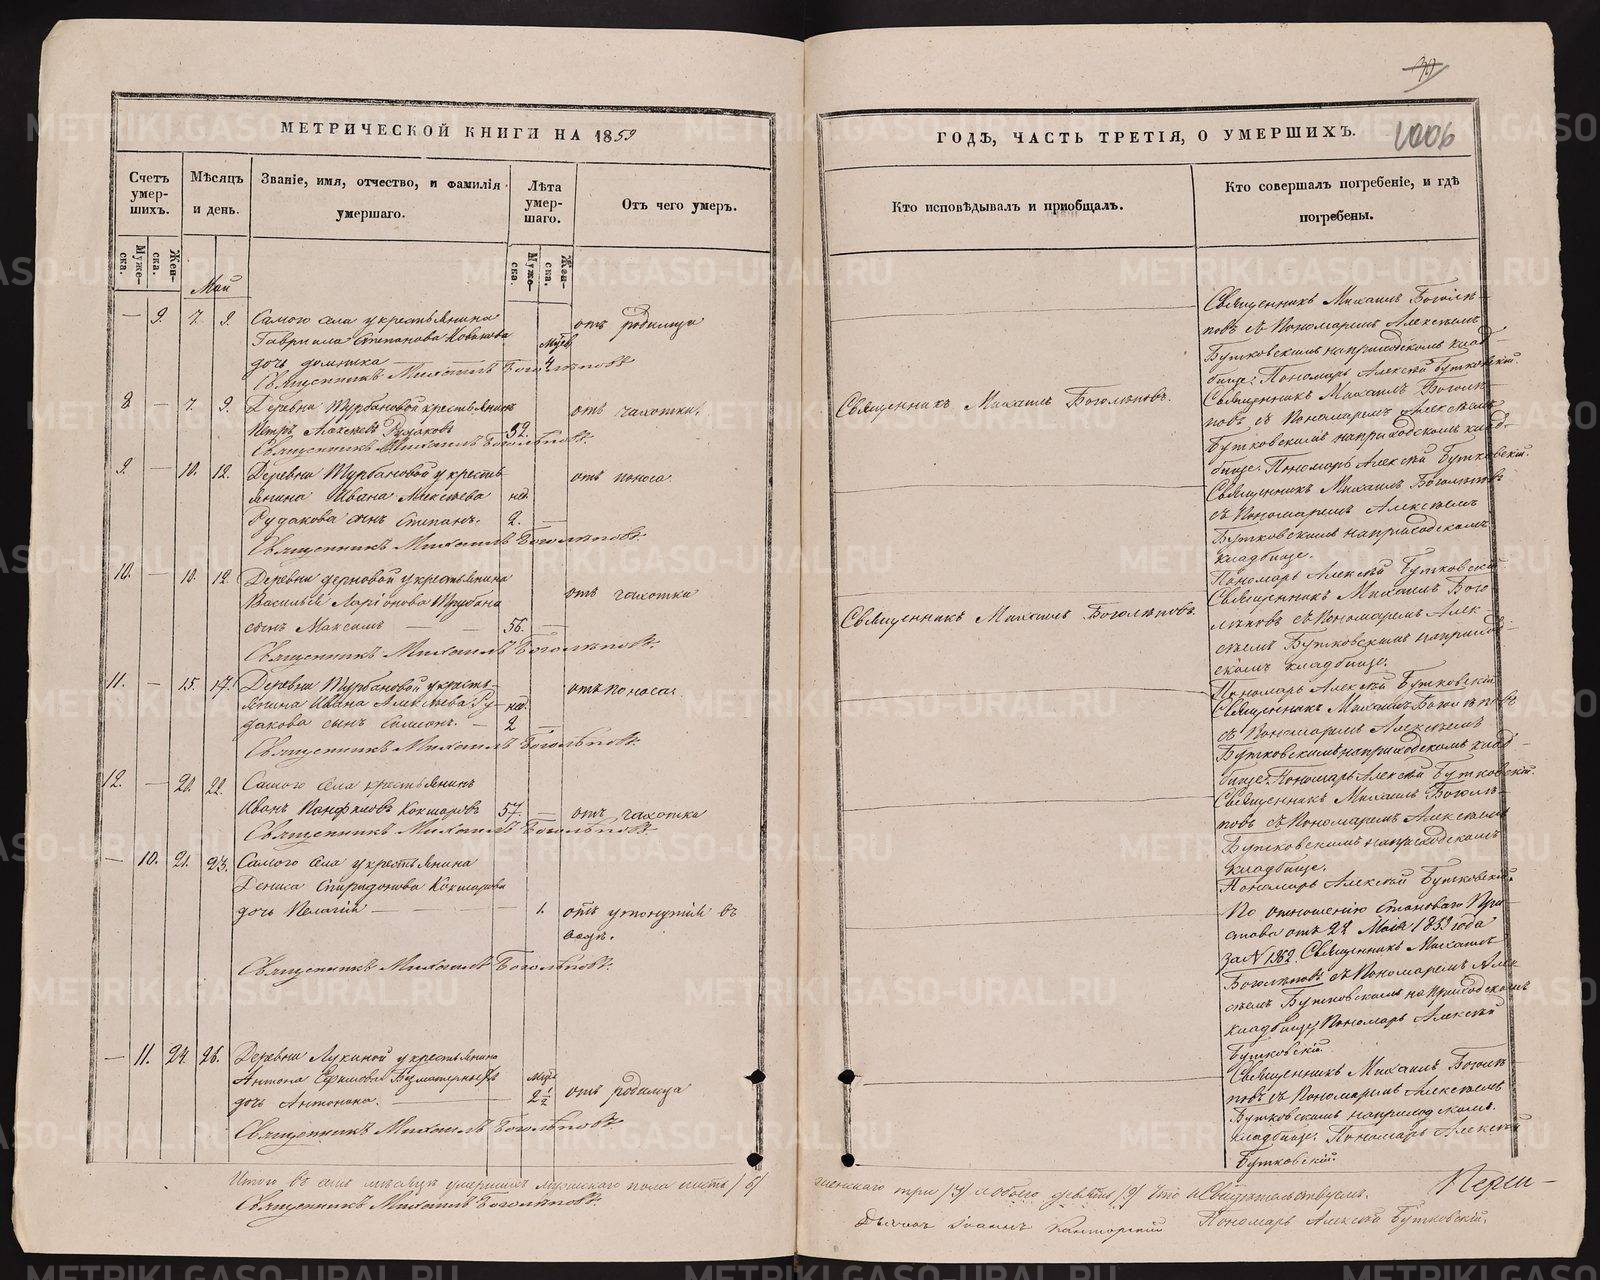 МЕТРИЧЕСКОЙ КНИГИ НА 1859
Счетъ умер-шихъ.
Мѣсяцъ и день.
Званіе, имя, отчество, и фамилія умершаго.
Лѣта умер-шаго.
Отъ чего умеръ.
Муже-ска.
Жен-ска.
Муже-ска.
Жен-ска.
Май
— 9. 7. 9. Самого села у крестьянина
Гавриила Степанова
дочь
Священникъ Михаилъ Боголѣповъ.
отъ родимца
4
8 — 7. 9. Деревни Турбановой крестьянинъ
Петръ Рудаковъ
Священникъ Михаилъ Боголѣповъ.
отъ чахотки.
9. — 10. 12. Деревни Турбановой у кресть-
янина Ивана Алексѣева нед.
Рудакова сынъ Степанъ. 2. —
Священникъ Михаилъ Боголѣповъ.
отъ поноса
10. — 10. 12. Деревни у крестьянина
Василья Ларіонова
сынъ Максимъ — — 56. —
Священникъ Михаилъ Боголѣповъ.
отъ чахотки
11. — 15. 17. Деревни Турбановой у кресть-
янина Ивана Алексѣева Ру- нед.
дакова сынъ — 2 —
Священникъ Михаилъ Боголѣповъ.
отъ поноса
12. — 20. 22. Самого села крестьянинъ
Иванъ Панфиловъ Кокшаровъ 57. — отъ чахотки
Священникъ Михаилъ Боголѣповъ.
— 10. 21. 23. Самого села у крестьянина
Дениса Спиридонова Кокшарова
дочь Пелагія — — 1. отъ утонутія въ
водѣ.
Священникъ Михаилъ Боголѣповъ.
— 11. 24. 26. Деревни Лукиной у крестьянина
Антона Ефимова Безматерныхъ
дочь Антонина. — 2 1/2 отъ родимца
Священникъ Михаилъ Боголѣповъ.
Итого въ семъ мѣсяцѣ умершихъ мужескаго пола шесть /6/
Священникъ Михаилъ Боголѣповъ.
ГОДѢ, ЧАСТЬ ТРЕТІЯ, О УМЕРШИХЪ.
Кто исповѣдывалъ и пріобщалъ.
Кто совершалъ погребеніе, и гдѣ погребены.
Священникъ Михаилъ Боголѣ-
повъ съ Пономаремъ Алексѣемъ
Бутковскимъ на приходскомъ клад-
бище. Пономарь Алексѣй Бутковскій.
Священникъ Михаилъ Боголѣповъ.
Священникъ Михаилъ Боголѣ-
повъ съ Пономаремъ Алексѣемъ
Бутковскимъ на приходскомъ клад-
бище. Пономарь Алексѣй Бутковскій.
Священникъ Михаилъ Боголѣповъ
съ Пономаремъ Алексѣемъ
Бутковскимъ на приходскомъ
кладбище.
Пономарь Алексѣй Бутковскій
Священникъ Михаилъ Боголѣповъ.
Священникъ Михаилъ Бого-
лѣповъ съ Пономаремъ Алек-
сѣемъ Бутковскимъ на приход-
скомъ кладбище.
Пономарь Алексѣй Бутковскій
Священникъ Михаилъ Боголѣповъ
съ Пономаремъ Алексѣемъ
Бутковскимъ на приходскомъ клад-
бище. Пономарь Алексѣй Бутковскій.
Священникъ Михаилъ Боголѣ-
повъ съ Пономаремъ Алексѣемъ
Бутковскимъ на приходскомъ
кладбище.
Пономарь Алексѣй Бутковскій.
По отношенію Становаго При-
става отъ 22 Мая 1859 года
за № 1362. Священникъ Михаилъ
Боголѣповъ съ Пономаремъ Алек-
сѣемъ Бутковскимъ на приходскомъ
кладбище Пономарь Алексѣй
Бутковскій.
Священникъ Михаилъ Боголѣ-
повъ съ Пономаремъ Алексѣемъ
Бутковскимъ на приходскомъ
кладбище. Пономарь Алексѣй
Бутковскій.
женскаго три /3/ а обоего девять /9/ Что и Свидѣтельствуемъ.
Дьячок Іоаннъ Канторскій Пономарь Алексѣй Бутковскій.
METRIKI.GASO-URAL.RU